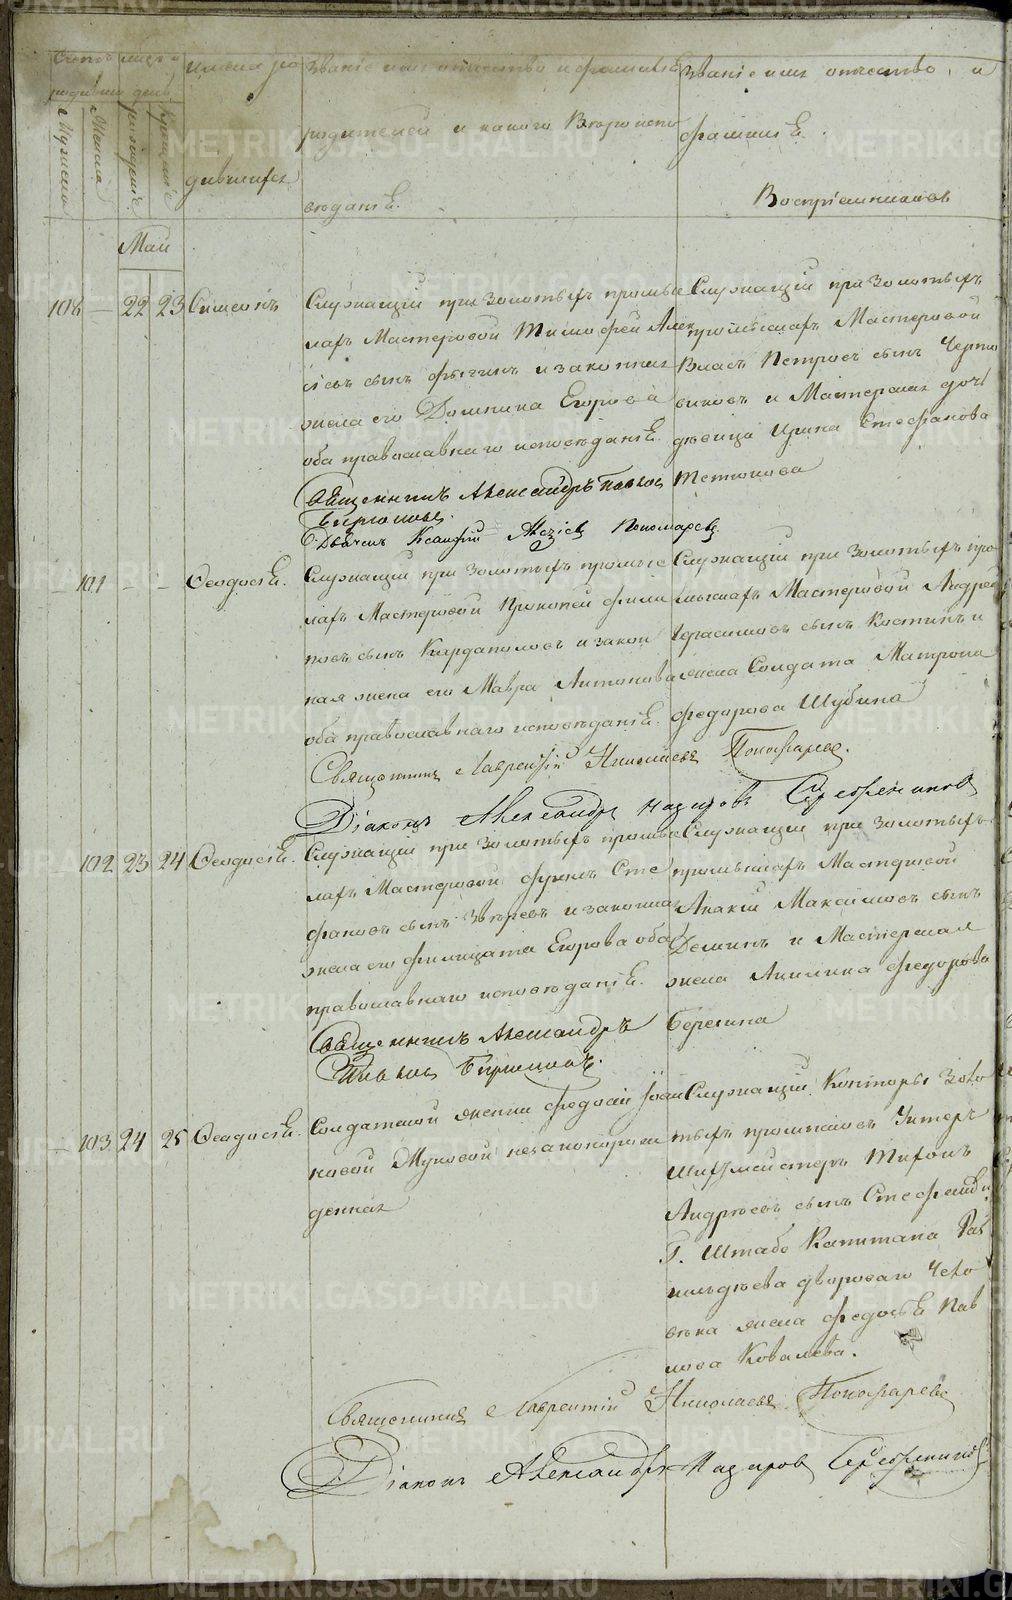 Счетъ
родивш
Мужеска
Женска
мцъ и
день
рожденіе
крещеніе
Имена ро
дившихся
Званіе имя отчество и фамилія
родителей и какого Вѣроиспо
вѣданія.
Званіе имя отчество, и
фамилія
Воспріемниковъ
Май
108 — 22 23 Симеонъ
Служащій при Золотыхъ промыс
лахъ Мастеровой Тимофей Алек
сѣевъ сынъ и законная
жена его Домника Егорова
оба православнаго исповѣданія.
Священникъ Александръ Павловъ
Бирюковъ.
Діячекъ Ксанфій Пономаревъ
Служащій при Золотыхъ
промыслахъ Мастеровой
Власъ Петровъ сынъ Черно
сковъ и Мастерская дочь
дѣвица Ирина Стефанова
Тетюкова
— 101 — — Феодосія.
Служащій при Золотыхъ промыс
лахъ Мастеровой Прокопей Филип
повъ сынъ Кардаполовъ и закон
ная жена его Мавра Антонова
оба православнаго исповѣданія.
Священникъ Лаврентій Николаевъ Пономаревъ.
Діаконъ Александръ Назаровъ Серебренниковъ
Служащій при Золотыхъ про
мыслахъ Мастеровой Андрей
Герасимовъ сынъ Костинъ и
жена Солдата Матрона
Федорова Шубина
— 102 23 24 Феодосія.
Служащій при Золотыхъ промыс
лахъ Мастеровой Фролъ Сте
фановъ сынъ Звѣревъ и законная
жена его Филицата Егорова оба
православнаго исповѣданія.
Священникъ Александръ
Павловъ Бирюковъ.
Служащій при Золотыхъ
промыслахъ Мастеровой
Акакій Максимовъ сынъ
Деминъ и Мастерская
жена Акилина Федорова
Березина
— 103 24 25 Феодосія.
Солдатской женки Федосіи Іоан
новой Муковой незаконорож
денная
Служащій Конторы Золо
тыхъ промысловъ Унтеръ
Шихтмейстеръ Тихонъ
Андреевъ сынъ
Г. Штабс Капитана
дѣева двороваго Чело
вѣка жена Федосья Пав
лова Ковалева.
Священникъ Лаврентій Николаевъ Пономаревъ
Діаконъ Александръ Назаровъ Серебренниковъ
METRIKI.GASO-URAL.RU